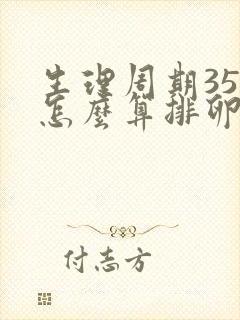 生理周期35
怎麼算排卵
付志方